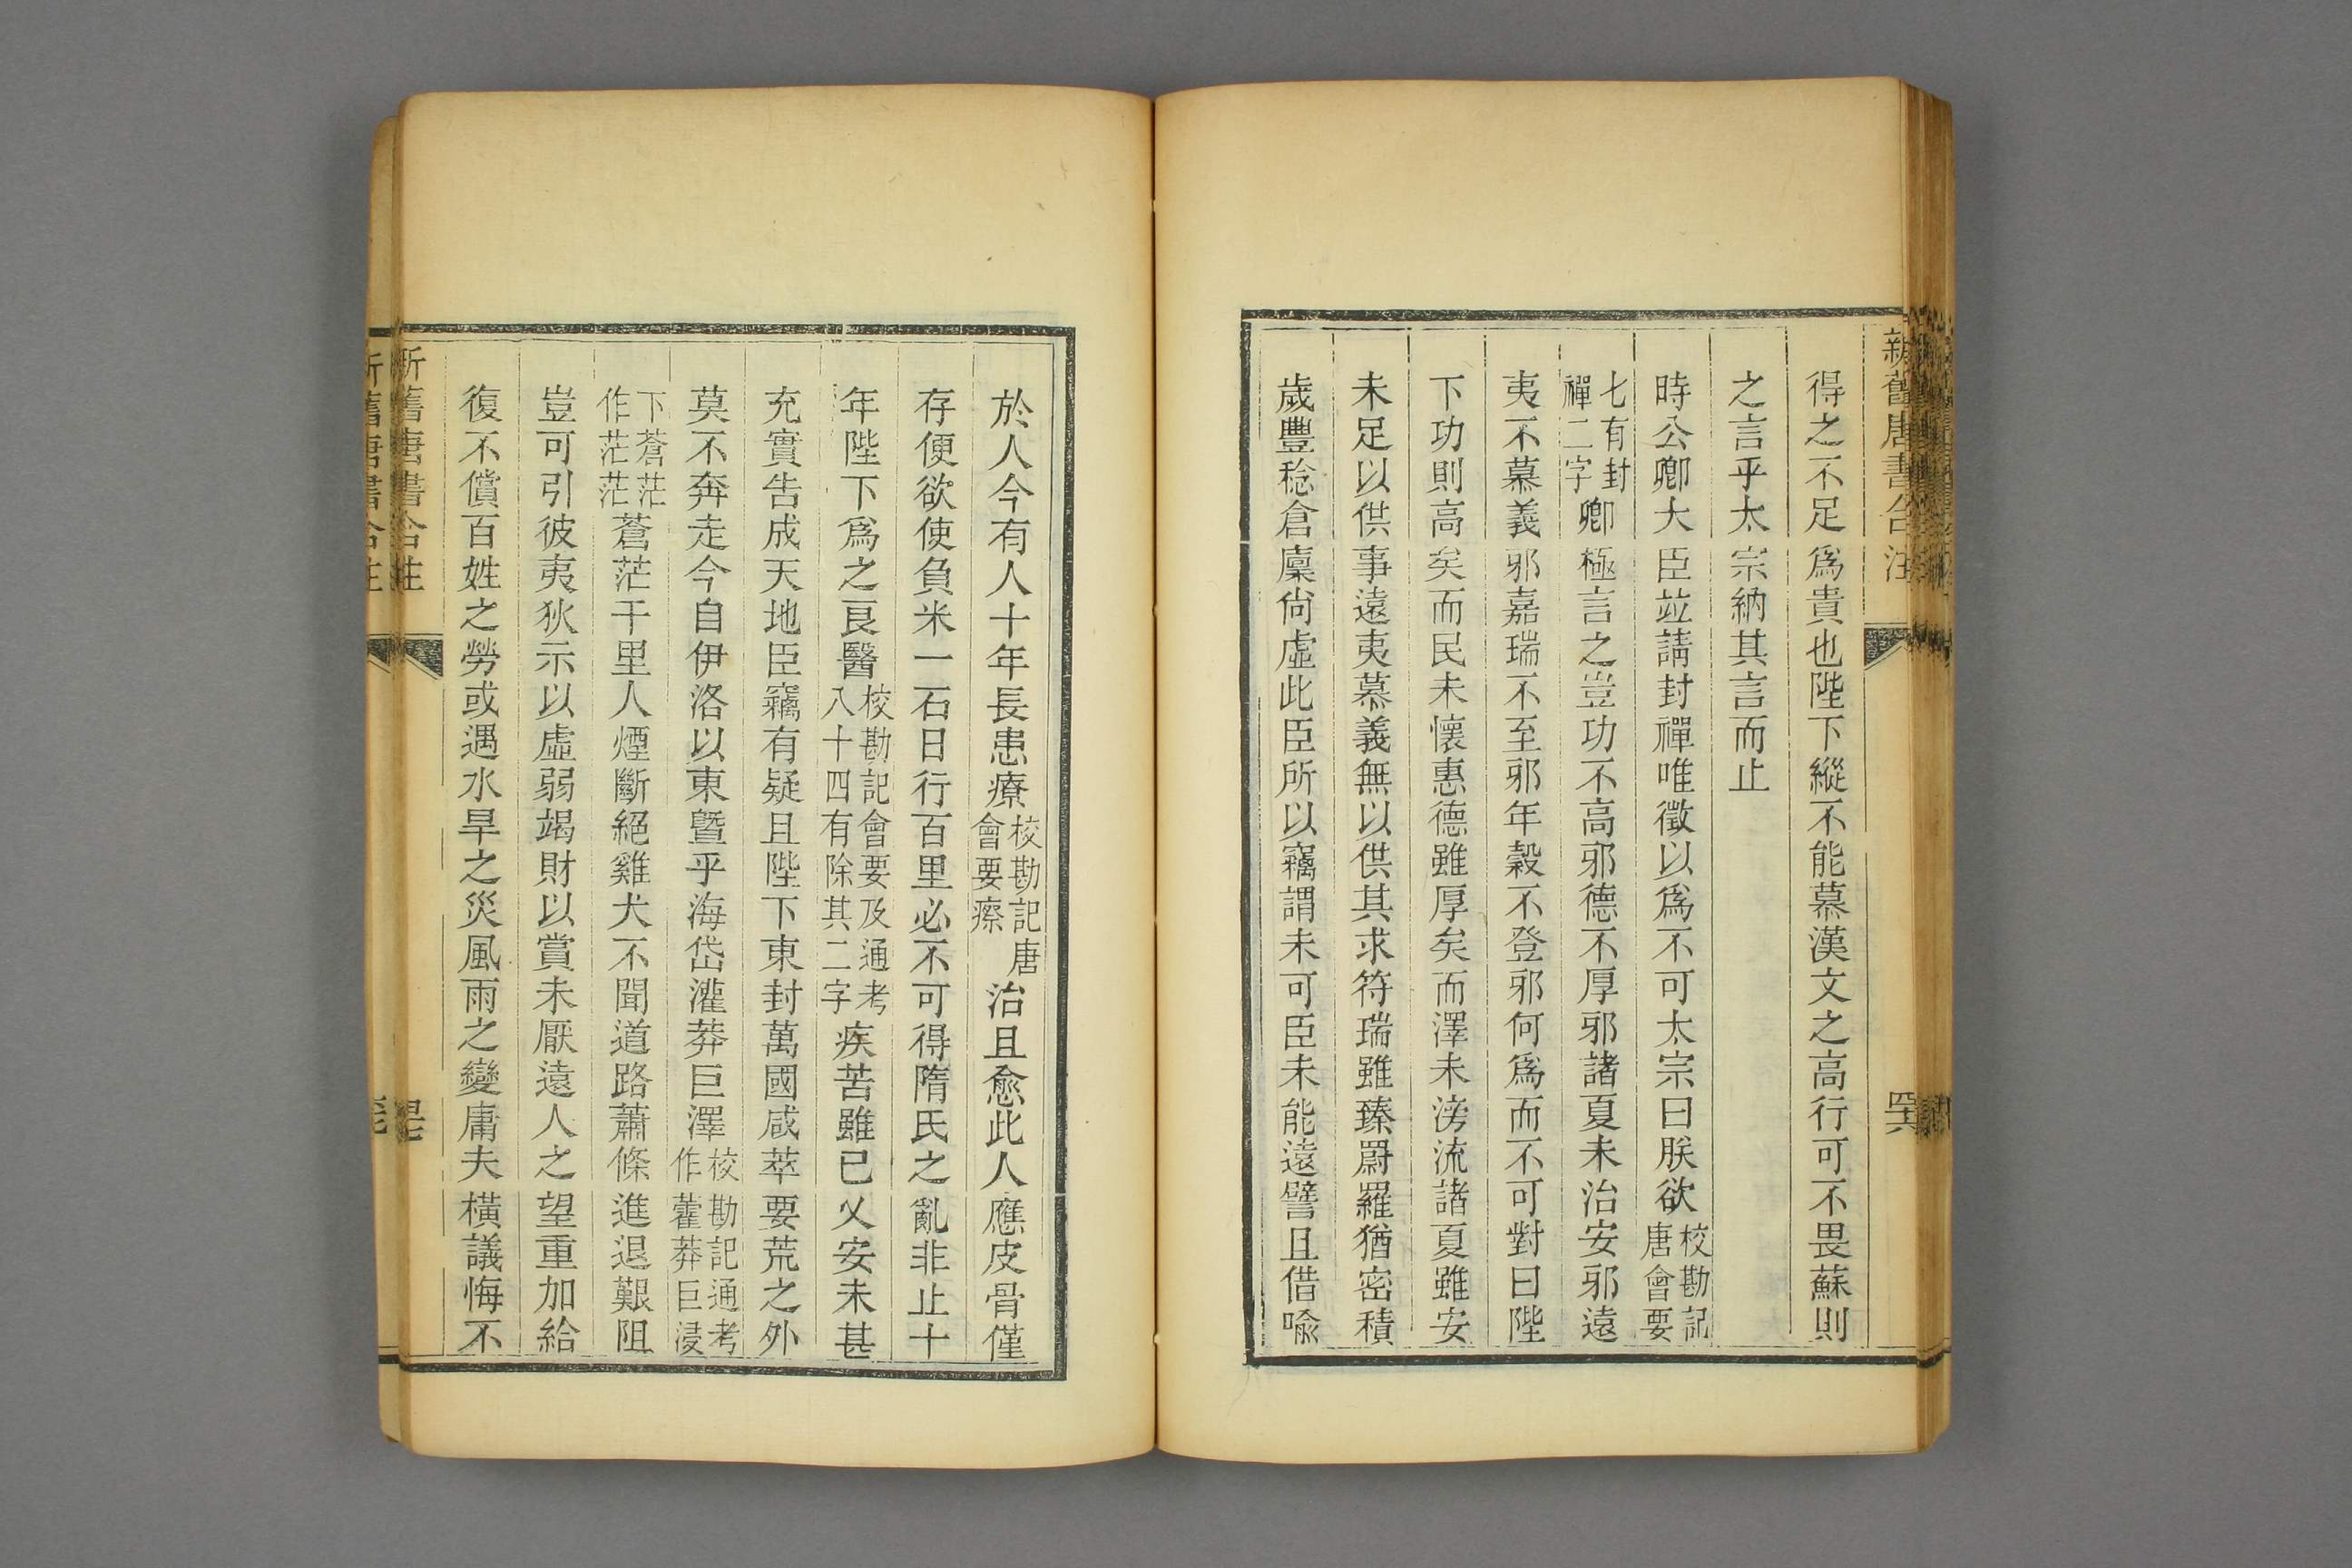 新舊唐書合注
得之不足爲貴也陛下縱不能慕漢文之高行可不畏蘇則
之言乎太宗納其言而止
時公卿大臣並請封禪唯徵以爲不可太宗曰朕欲校勘記唐會要
七有封禪二字卿極言之豈功不高邪德不厚邪諸夏未治安邪遠
夷不慕義邪嘉瑞不至邪年穀不登邪何爲而不可對曰陛
下功則高矣而民未懷惠德雖厚矣而澤未滂流諸夏雖安
未足以供事遠夷慕義無以供其求符瑞雖臻罻羅猶密積
歲豐稔倉廩尙虛此臣所以竊謂未可臣未能遠譬且借喻
於人今有人十年長患療校勘記唐會要瘵治且愈此人應皮骨僅
存便欲使負米一石日行百里必不可得隋氏之亂非止十
年陛下爲之良醫校勘記會要及通考八十四有除其二字疾苦雖已乂安未甚
充實告成天地臣竊有疑且陛下東封萬國咸萃要荒之外
莫不奔走今自伊洛以東曁乎海岱灌莽巨澤校勘記通考作藿莽巨浸
下蒼茫作茫茫蒼茫千里人煙斷絕雞犬不聞道路蕭條進退艱阻
豈可引彼夷狄示以虛弱竭財以賞未厭遠人之望重加給
復不償百姓之勞或遇水旱之災風雨之變庸夫橫議悔不
新舊唐書合注